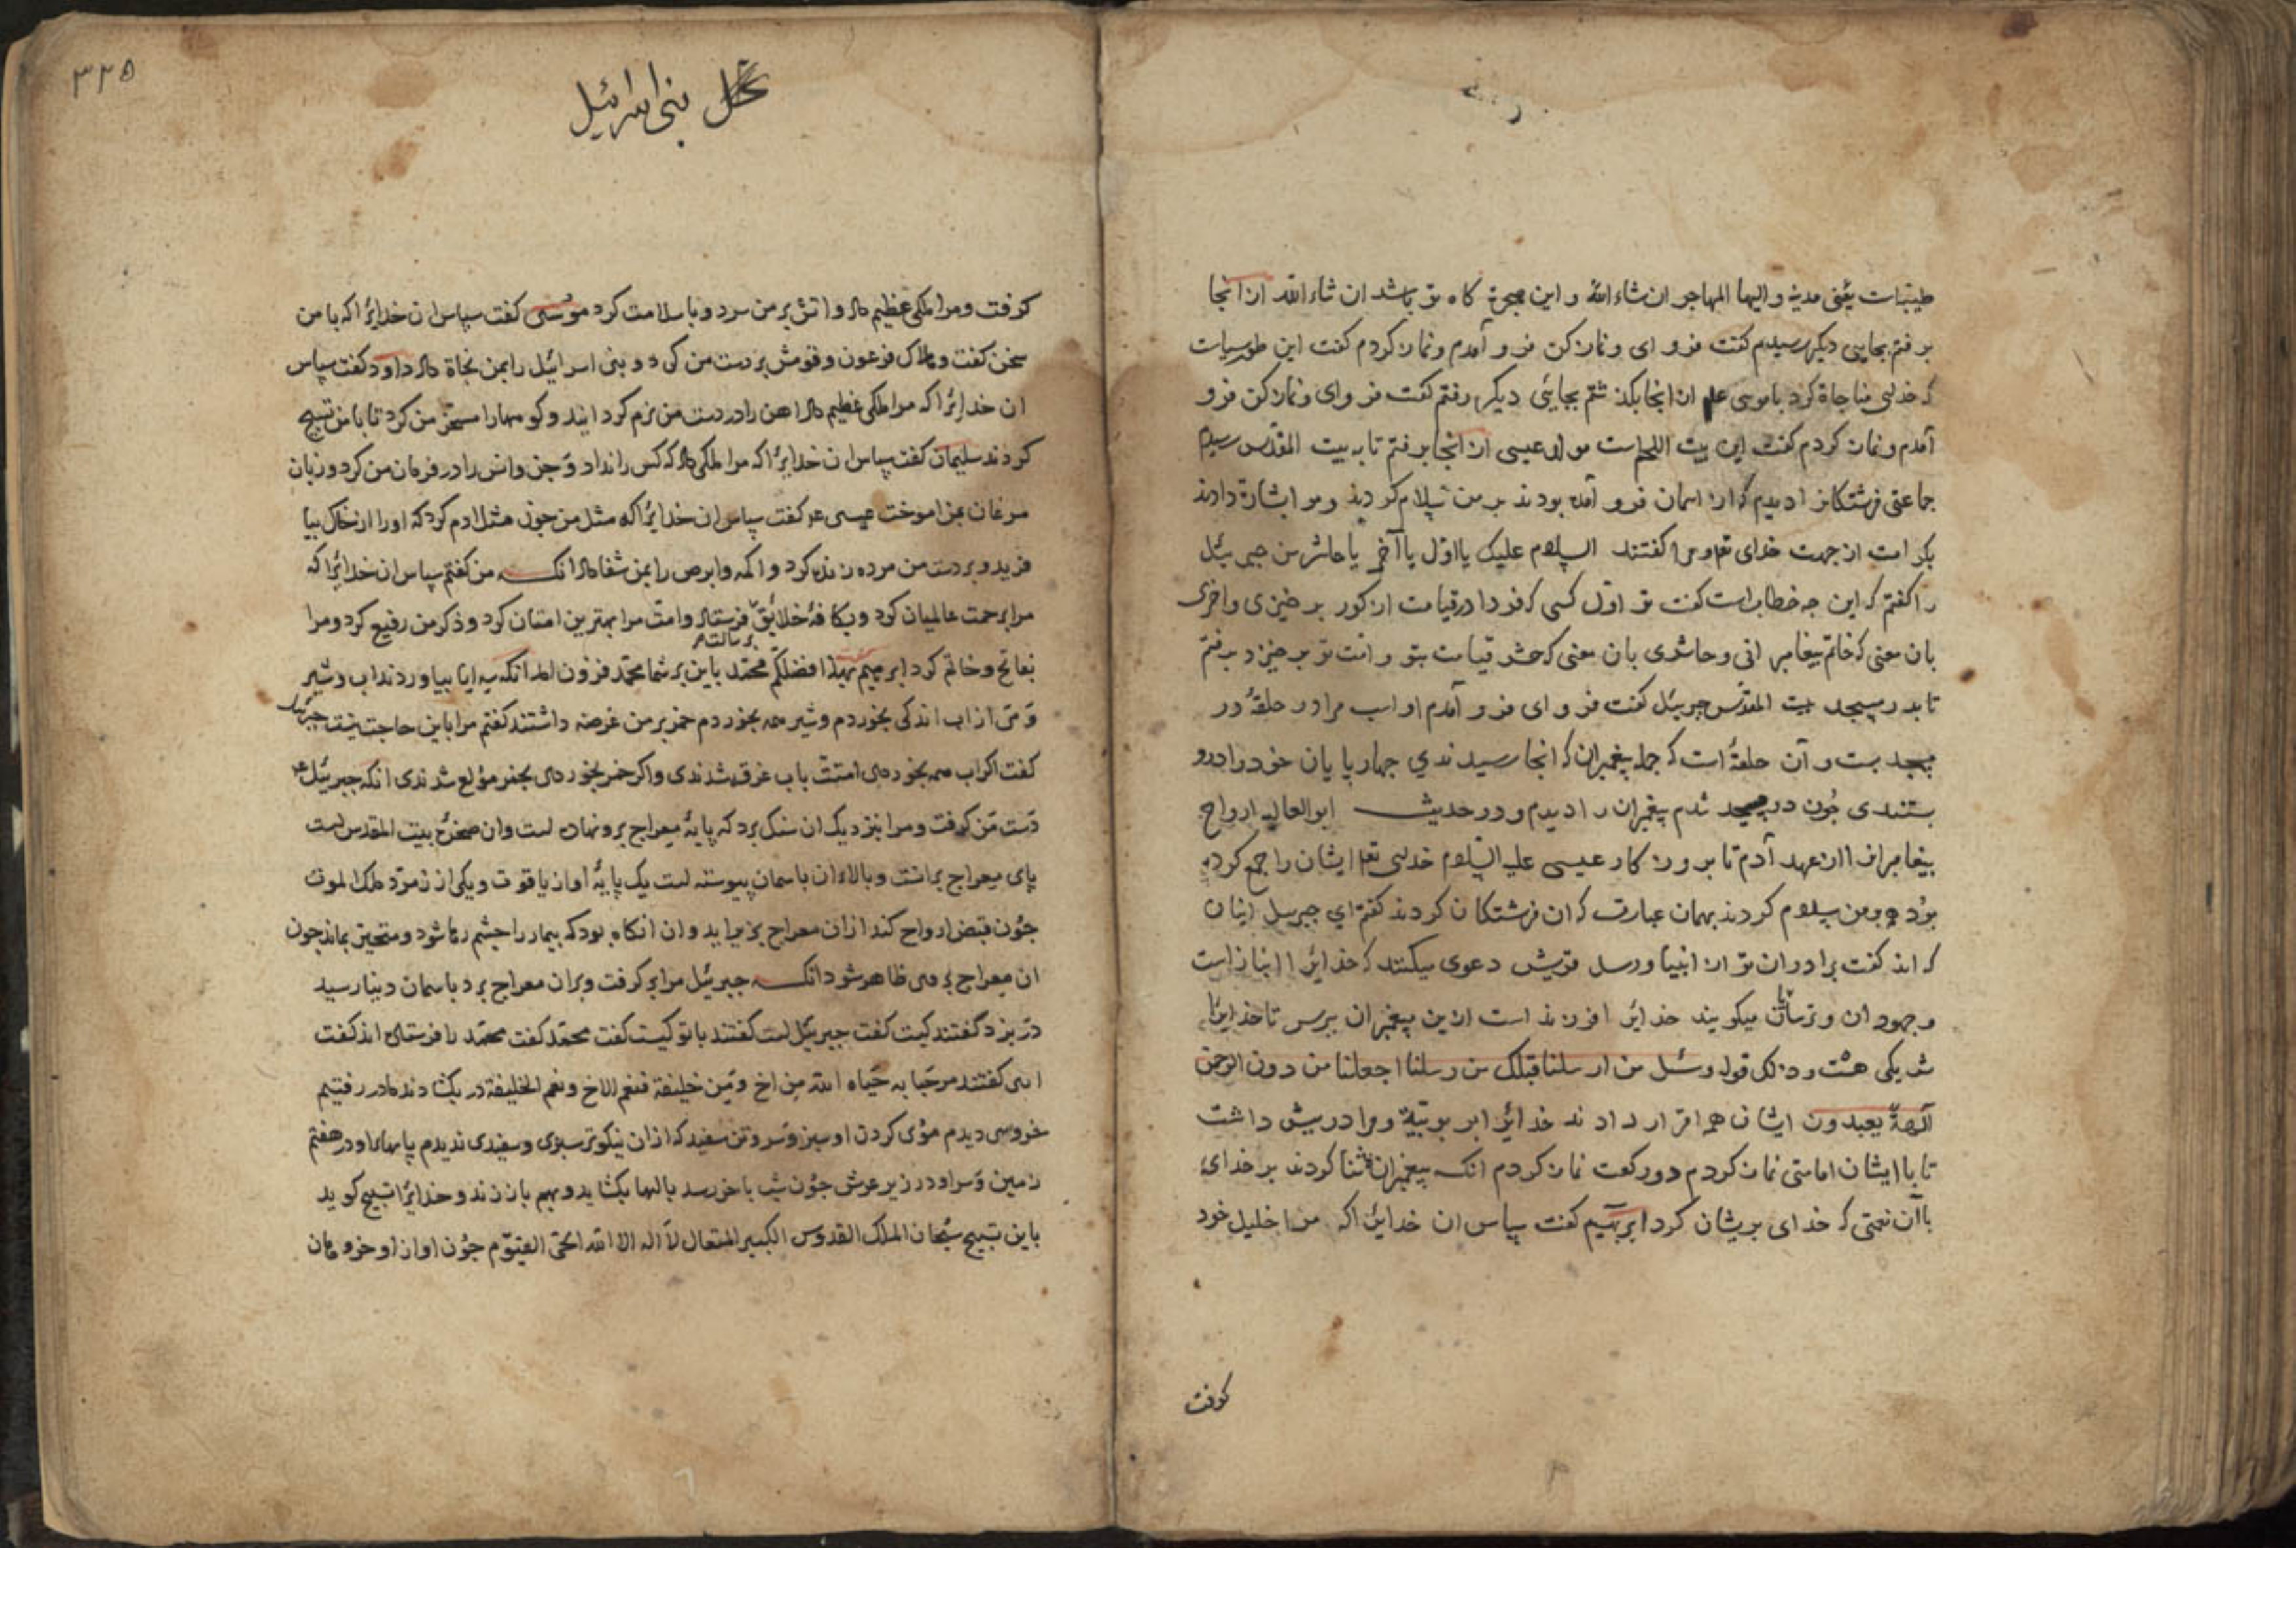 طیبات یعنی مدینه و الیها المهاجر ان شاء الله و این هجرة کاه تو باشد ان شاء الله از انجا
برفتم بجایی دیکر رسیدم کفت فرو ای و نماز کن فرو آمدم و نماز کردم کفت این طورسیناست
که خدای مناجاة کرد با موسی علم از انجا بکذشتم بجایئی دیکر رفتم کفت فرو ای و نماز کن فرو
آمدم و نماز کردم کفت این بیت اللحم است مولد عیسی از انجا برفتم تا به بیت المقدس رسیدم
جماعتی فرشتکانرا دیدم که از اسمان فرو آمده بودند بر من سلام کردند و مرا بشارة دادند
بکرامت از جهت خدای تعا و مرا کفتند السلام علیک یا اول یا آخر یا حاشر من جبرئیل
را کفتم که این چه خطاب است کفت تو اول کسی که فردا در قیامت از کور برخیزی و اخری
بان معنی که خاتم پیغامبرانی و حاشری بان معنی که حشر قیامت بتو و امت تو برخیزد برفتم
تا بدر مسجد بیت المقدس جبرئیل کفت فرو ای فرو آمدم او اسب مرا در حلقهٔ در
مسجد بست و آن حلقهٔ است که جمله پیغمبران که انجا رسیدندی چهارپایان خود را درو
بستندی چون در مسجد شدم پیغمبران را دیدم و در حدیث ابوالعالیه ارواح
پیغامبران از عهد آدم تا بروزکار عیسی علیه السلام خدای تعا ایشان را جمع کرده
بود بر من سلام کردند بهمان عبارت که ان فرشتکان کردند کفتم ای جبریل اینان
که اند کفت برادران تو از انبیا و رسل قریش دعوی میکنند که خدایرا انبازاست
و جهودان و ترسایان میکویند خدایرا فرزند است ازین پیغمبران بپرس تا خدایرا
شریکی هست و ذلک قوله وسئل من ارسلنا قبلک من رسلنا اجعلنا من دون الرحمن
آلهة یعبدون ایشان همه اقرار دادند خدایرا بربوبیة و مرا در پیش داشت
تا با ایشان امامتی نماز کردم دو رکعت نماز کردم انکه پیغمبران ثنا کردند بر خدای
باآن نعمتی که خدای بریشان کرد ابرهیم کفت سپاس ان خدایرا که مرا خلیل خود
کرفت
۳۲۵
بنی اسرائیل
کرفت و مرا ملکی عظیم داد و اتش بر من سرد و با سلامت کرد موسی کفت سپاس ان خدایرا که با من
سخن کفت و هلاک فرعون و قومش بر دست من کرد و بنی اسرائیل را بمن نجاة داد داود کفت سپاس
ان خدایرا که مرا ملکی عظیم داد اهن را در دست من نرم کردانید و کوهها را مسخر من کرد تا با من تسبیح
کردند سلیمان کفت سپاس ان خدایرا که مرا ملکی داد که کس را نداد و جن و انس را در فرمان من کرد و زبان
مرغان بمن اموخت عیسی عم کفت سپاس ان خدایرا که مثل من چون مثل ادم کرد که او را از خاک بیا
فرید و بر دست من مرده زنده کرد و اکمه و ابرص را بمن شفا داد انکه من کفتم سپاس ان خدایرا که
مرا برحمت عالمیان کرد و بکافهٔ خلایق فرستاد و امت مرا بهترین امتان کرد و ذکر من رفیع کرد و مرا
برسالت
بفاتح و خاتم کرد ابرهیم کفت بهذا افضلکم محمد باین بر شما محمد فزون امد انکه سه انا بیاوردند اب و شیر
و من از اب اندکی بخوردم و شیر همه بخوردم خمر بر من عرضه داشتند کفتم مرا باین حاجت نیست جبرئیل
کفت اکر اب همه بخوردی امتت باب غرقه شدندی و اکر خمر بخوردی بخمر مولع شدندی انکه جبرئیل عم
دست من کرفت و مرا بنزدیک ان سنک برد که پایهٔ معراج برو نهاده است و ان صخرهٔ بیت المقدس است
پای معراج برانست و بالاء ان باسمان پیوسته است یک پایهٔ او از یاقوت و یکی از زمرد ملک الموت
چون قبض ارواح کند ازان معراج بزیر اید و ان انکاه بود که بیمار را چشم رها شود و متحیر بماند چون
ان معراج بر وی ظاهر شود انکه جبرئیل مرا بر کرفت و بران معراج برد باسمان دنیا رسید
در بزد کفتند کیست کفت جبرئیل است کفتند با تو کیست کفت محمد کفت محمد را فرستاده اند کفت
اری کفتند مرحبا به حیاه الله من اخ و من خلیفة فنعم الاخ و نعم الخلیفة در بکشادند ما در رفتیم
خروسی دیدم موی کردن او سبز و سر و تن سفید که ازان نیکوتر سبزی و سفیدی ندیدم پایهای او در هفتم
زمین و سر او در زیر عرش چون شب باخر رسد بالها بکشاید و بهم باز زند و خدایرا تسبیح کوید
باین تسبیح سبحان الملک القدوس الکبیر المتعال لا اله الا الله الحی القیوم چون اواز او خروهان